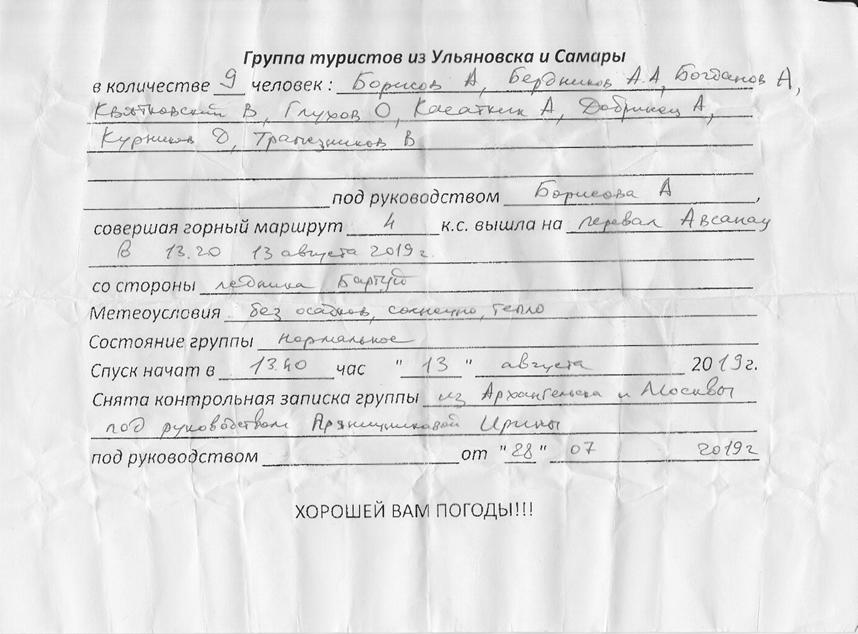 Группа туристов из Ульяновска и Самары
в количестве 9 человек : Борисов А, Бердников А.А, Богданов А,
Квятковский В, Глухов О, Касаткин А, Добринец А,
Курников Д, Трапезников В
под руководством Борисова А ,
совершая горный маршрут 4 к.с. вышла на перевал Авсанау
в 13.20 13 августа 2019 г.
со стороны ледника Бартуй
Метеоусловия без осадков, солнечно, тепло
Состояние группы нормальное
Спуск начат в 13.40 час "13" августа 2019г.
Снята контрольная записка группы из Архангельска и Москвы
под руководством Ирины
под руководством от "28" 07 2019 г
ХОРОШЕЙ ВАМ ПОГОДЫ!!!